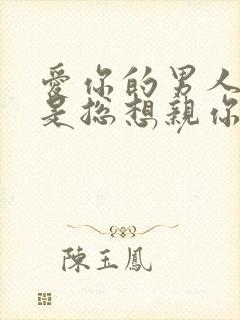 愛你的男人
是總想親你
陳玉鳳